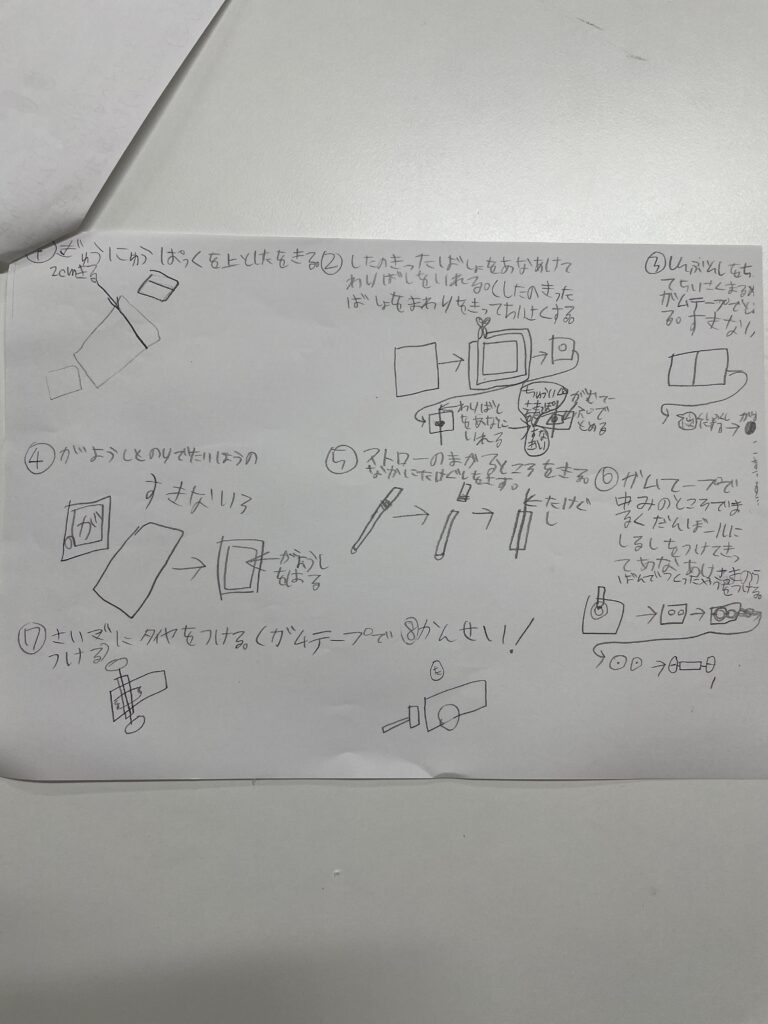 ① ぎゅうにゅうぱっくを上としたをきる。
2cmきる
② したのきったばしょをあなあけて
わりばしをいれる。(したのきった
ばしょをまわりをきってちいさくする
わりばし
をあなに
いれる
ちゅうい
がむてー
ぷで
とめる
③ しんぶんしをも
てちいさくまるめ
ガムテープでと
る。すきない
④ がようしとのりでたいほうの
すきないろ
が
がようし
をはる
⑤ ストローのまがるところをきる。
なかにたけぐしをさす。
たけぐ
し
⑥ ガムテープで
中みのところでま
るくだんボールに
しるしをつけてきっ
てあなをあけ
をつける。
⑦ さいごにタイヤをつける。(ガムテープで
つける)
⑧ かんせい!